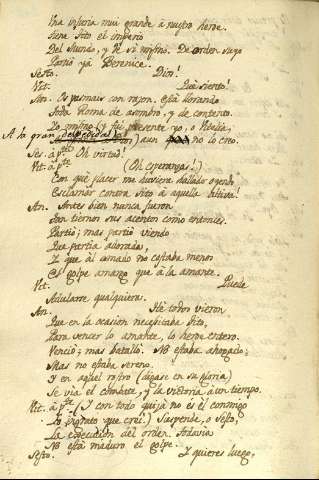 Una vitoria mui grande á nuestro heroe.
Tiene Tito el imperio
Del Mundo, y de sí mismo. De orden suya
Partió ya Berenice.
Sesto. Dios!
Vit. Qué siento!
Ann. Os pasmais con razon. Está llorando
Toda Roma de asombro, y de contento.
Lo mismo y fui presente yo, o Vitelia,
A la gran despedida) aun no lo creo.
Ses. á pte Oh virtud!
Vit. á pte (Oh esperanzas!)
Con qué placer me huviera hallado oyendo
Esclamar contra Tito á aquella altiva!
An. Antes bien nunca fueron
Tan tiernos sus acentos como entonces.
Partió; mas partió viendo
Que partia adorada,
Y que al amado no costaba menor
El golpe amargo que á la amante.
Vit. Puede
Adularse qualquiera.
An. Hé todos vieron
Que en la ocasion necesitaba Tito,
Para vencer lo amante, lo heroe entero.
Venció; mas batalló. No estaba ahogado;
Mas no estaba sereno.
Y en aquel rostro (dígase en su gloria)
Se via el combate, y la victoria á un tiempo.
Vit. á pte (Y con todo quizá no es él conmigo
Lo ingrato que creí.) Suspende, o Sesto,
La egecucion del orden. Todavia
No está maduro el golpe.
Sesto. Y quieres luego,